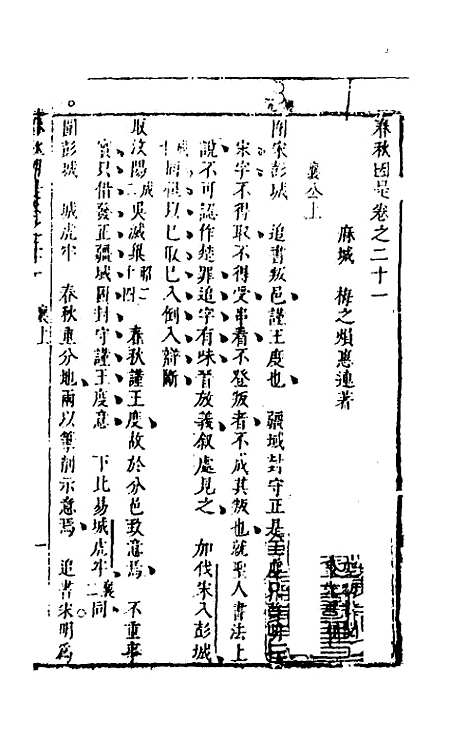 春秋因是卷之二十一
麻城 梅之熉惠連著
襄公上
圍宋彭城 追書叛邑謹王度也 疆域封守正是王度
宋字不得取不得受串看不登叛者不成其叛也就聖人書法上
說不可認作楚罪追字有味首放義叙處見之 加伐宋入彭城
同但以已取已入倒入辯斷
取汶陽 成二 吳滅巢 昭二十四 春秋謹王度故於分邑致意焉 不重寧
實只借發正疆域固封守謹王度意 下比易城虎牢 襄二 同
圍彭城 城虎牢 春秋重分地兩以筆削示意焉 追書宋明為
襄上
一